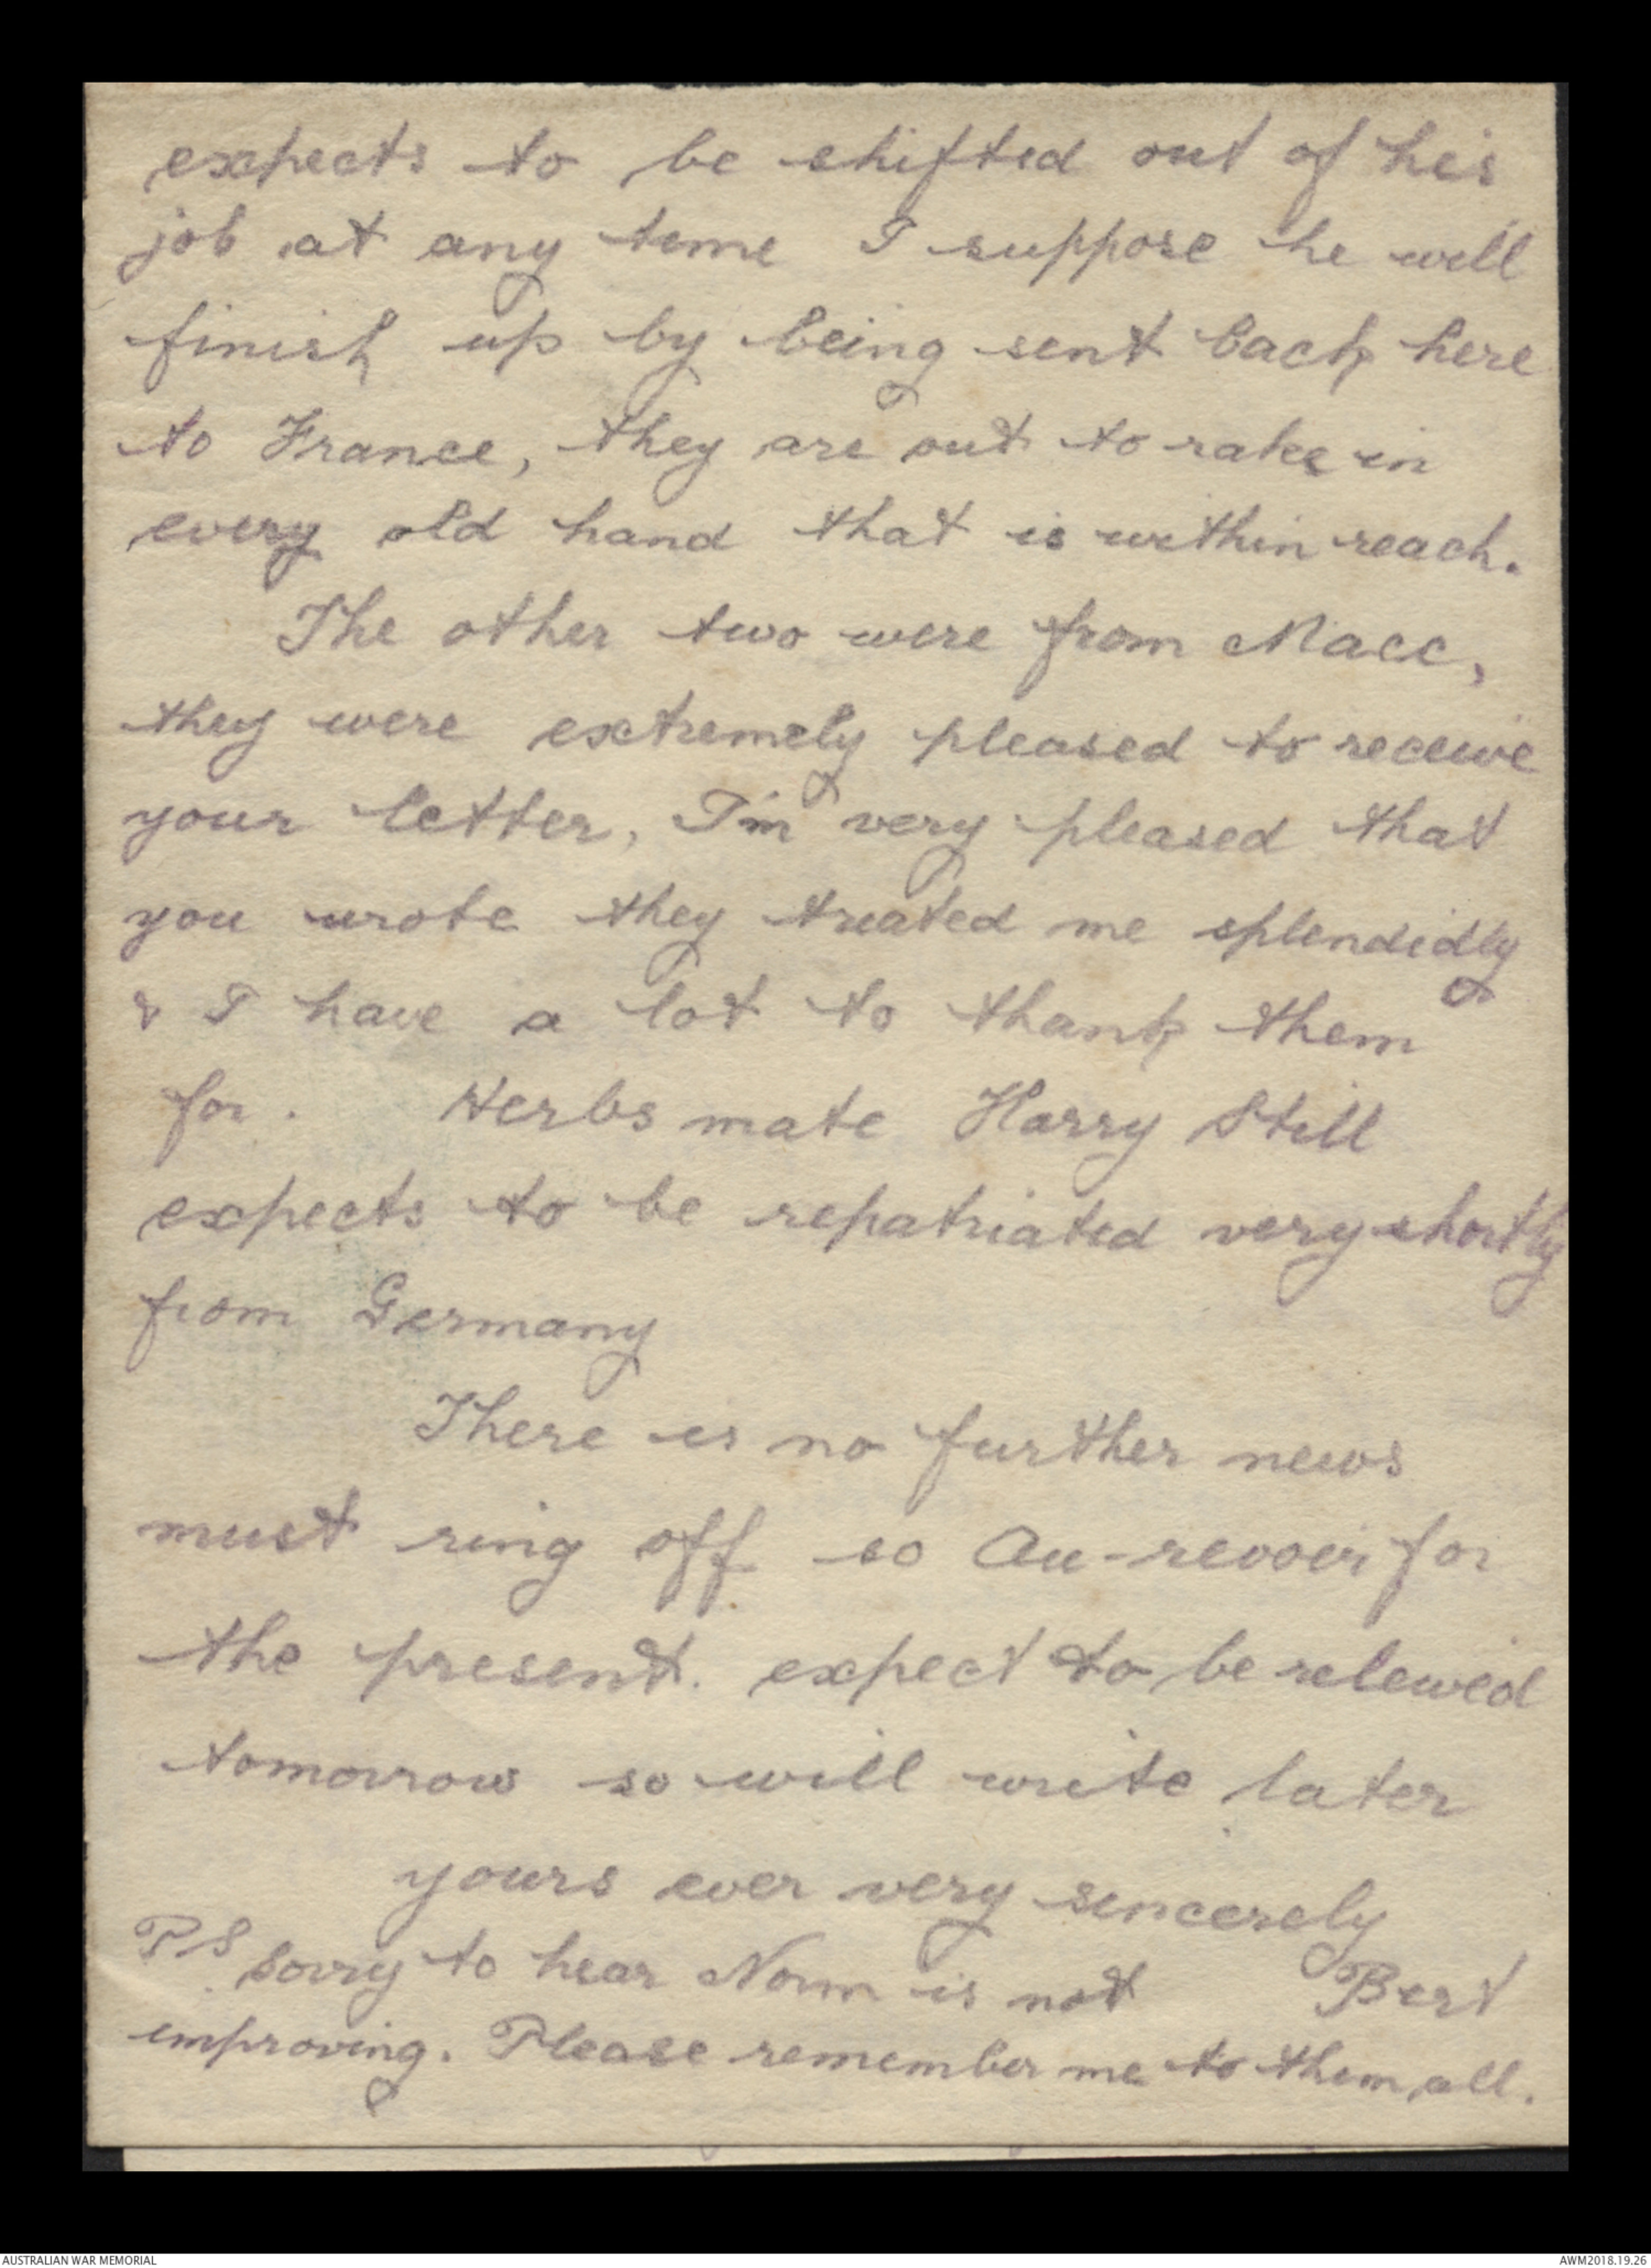 expects to be shifted out of his
job at any time I suppose he will
finish up by being sent back here
to France, they are out to rake in
every old hand that is within reach.
The other two were from Macc,
they were extremely pleased to receive
your letter, I'm very pleased that
you wrote they treated me splendidly
& I have a lot to thank them
for. Herbs mate Harry Still
expects to be repatriated very shortly
from Germany
There is no further news
must ring off so Au-revoir for
the present. expect to be relewied
tomorrow so will write later
yours ever very sincerely
Bert
PS Sorry to hear Norm is not
improving. Please remember me to them all.
AUSTRALIAN WAR MEMORIAL
AWM2018.19.26